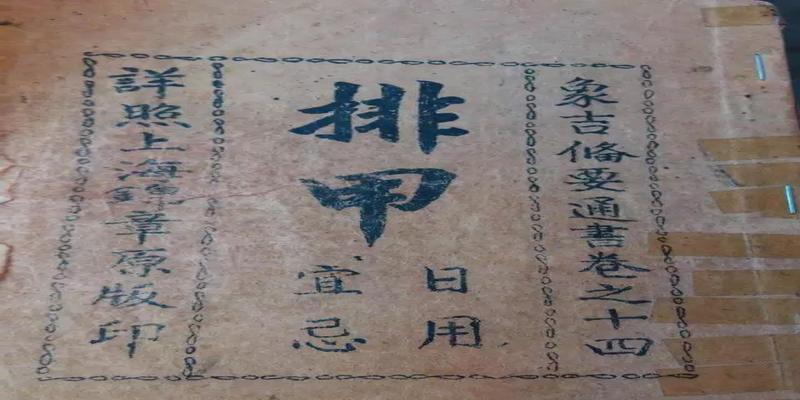 象吉俻要通書卷之十四
排甲
日用
宜忌
詳照上海錦章原版印